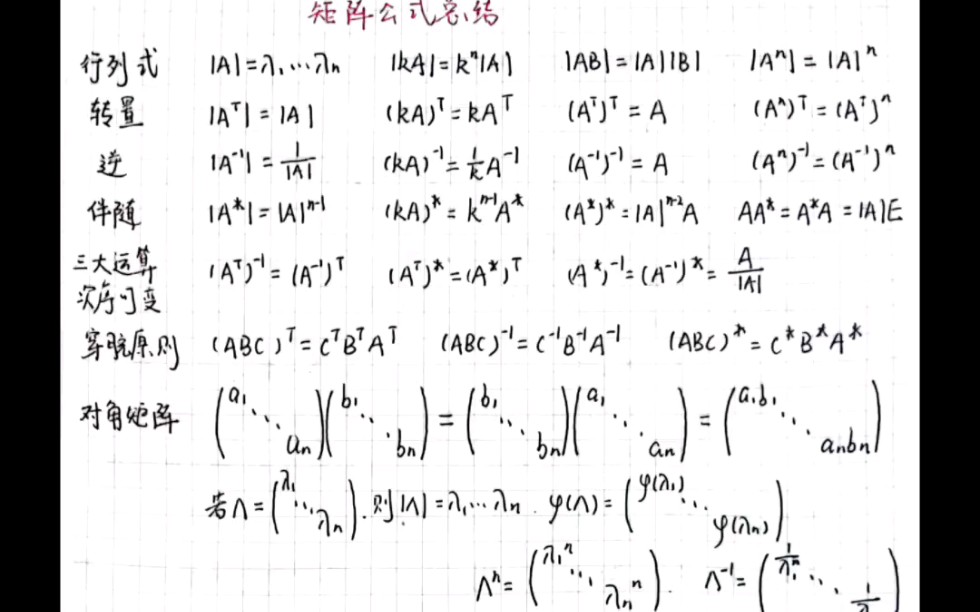 矩阵公式总结
行列式 |A|=λ₁⋯λn |kA|=kⁿ|A| |AB|=|A||B| |Aⁿ|=|A|ⁿ
转置 |Aᵀ|=|A| (kA)ᵀ=kAᵀ (Aᵀ)ᵀ=A (Aⁿ)ᵀ=(Aᵀ)ⁿ
逆 |A⁻¹|=1/|A| (kA)⁻¹=1/k A⁻¹ (A⁻¹)⁻¹=A (Aⁿ)⁻¹=(A⁻¹)ⁿ
伴随 |A*|=|A|ⁿ⁻¹ (kA)*=kⁿ⁻¹A* (A*)*=|A|ⁿ⁻²A AA*=A*A=|A|E
三大运算次序可变 (Aᵀ)⁻¹=(A⁻¹)ᵀ (Aᵀ)*=(A*)ᵀ (A*)⁻¹=(A⁻¹)*=A/|A|
穿脱原则 (ABC)ᵀ=CᵀBᵀAᵀ (ABC)⁻¹=C⁻¹B⁻¹A⁻¹ (ABC)*=C*B*A*
对角矩阵 (a₁ ⋱ an)(b₁ ⋱ bn)=(b₁ ⋱ bn)(a₁ ⋱ an)=(a₁b₁ ⋱ anbn)
若Λ=(λ₁ ⋱ λn).则|Λ|=λ₁⋯λn. φ(Λ)=(φ(λ₁) ⋱ φ(λn))
Λⁿ=(λ₁ⁿ ⋱ λnⁿ). Λ⁻¹=